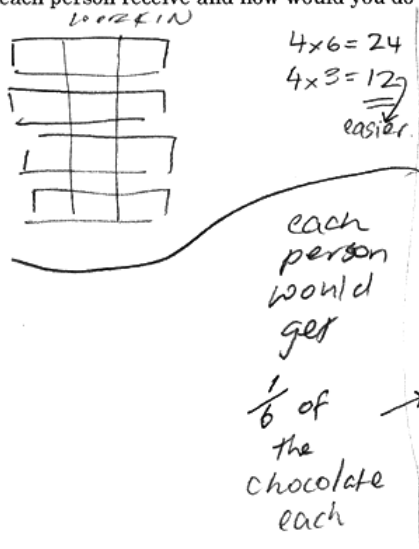 each person receive and how would you do
WORKIN
4×6=24
4×3=12
easier.
each
person
would
get
1/6 of
the
chocolate
each